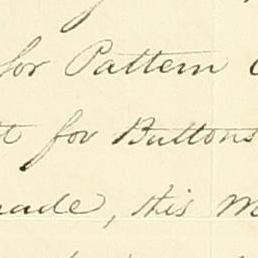 for Pattern
for Buttons
made, this